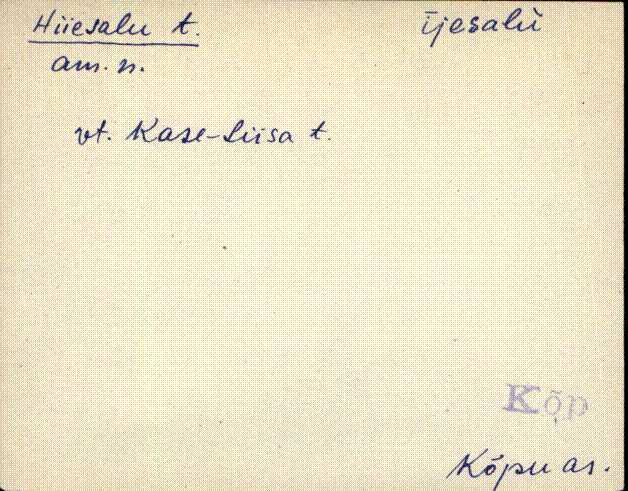 Hiiesalu t. ījesalu̇
am. n.
vt. Kase-Liisa t.
Kõp
Kõpu as.